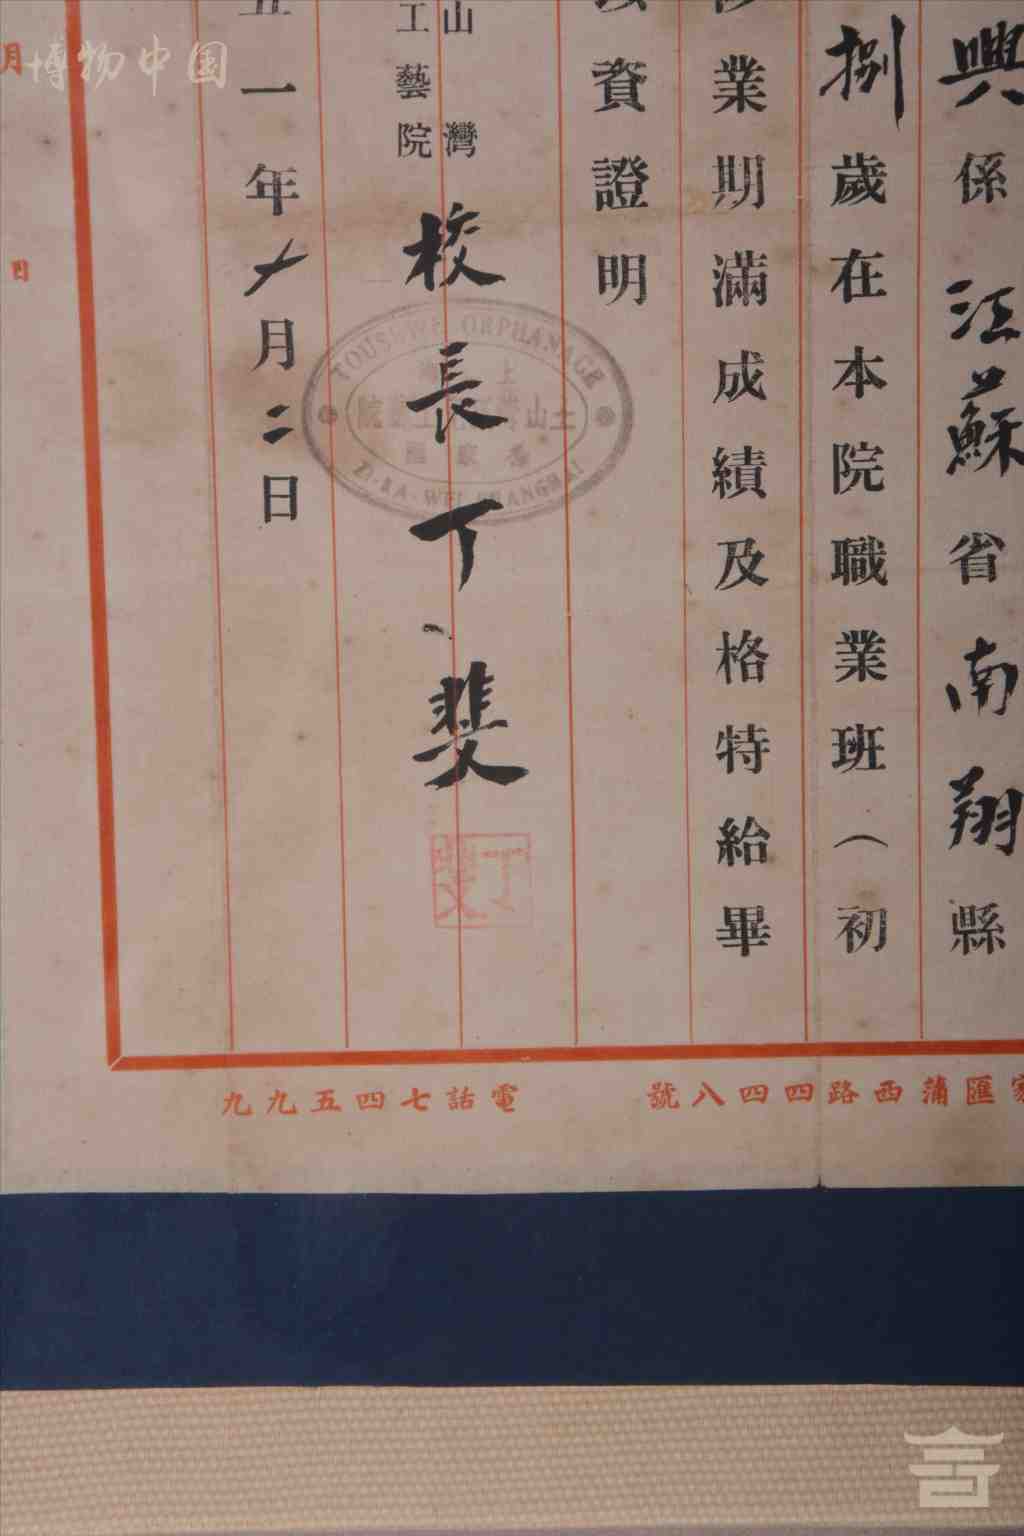 興係江蘇省南翔縣
捌歲在本院職業班（初
業期滿成績及格特給畢
資證明
山灣
工藝院
校長丁斐
五一年十月二日
月
日
TOUSEWE ORPHANAGE
上海
土山灣
工藝院
ZI-KA-WEI SHANGHAI
丁斐
家匯蒲西路四四八號
電話七四五九九
博物中国